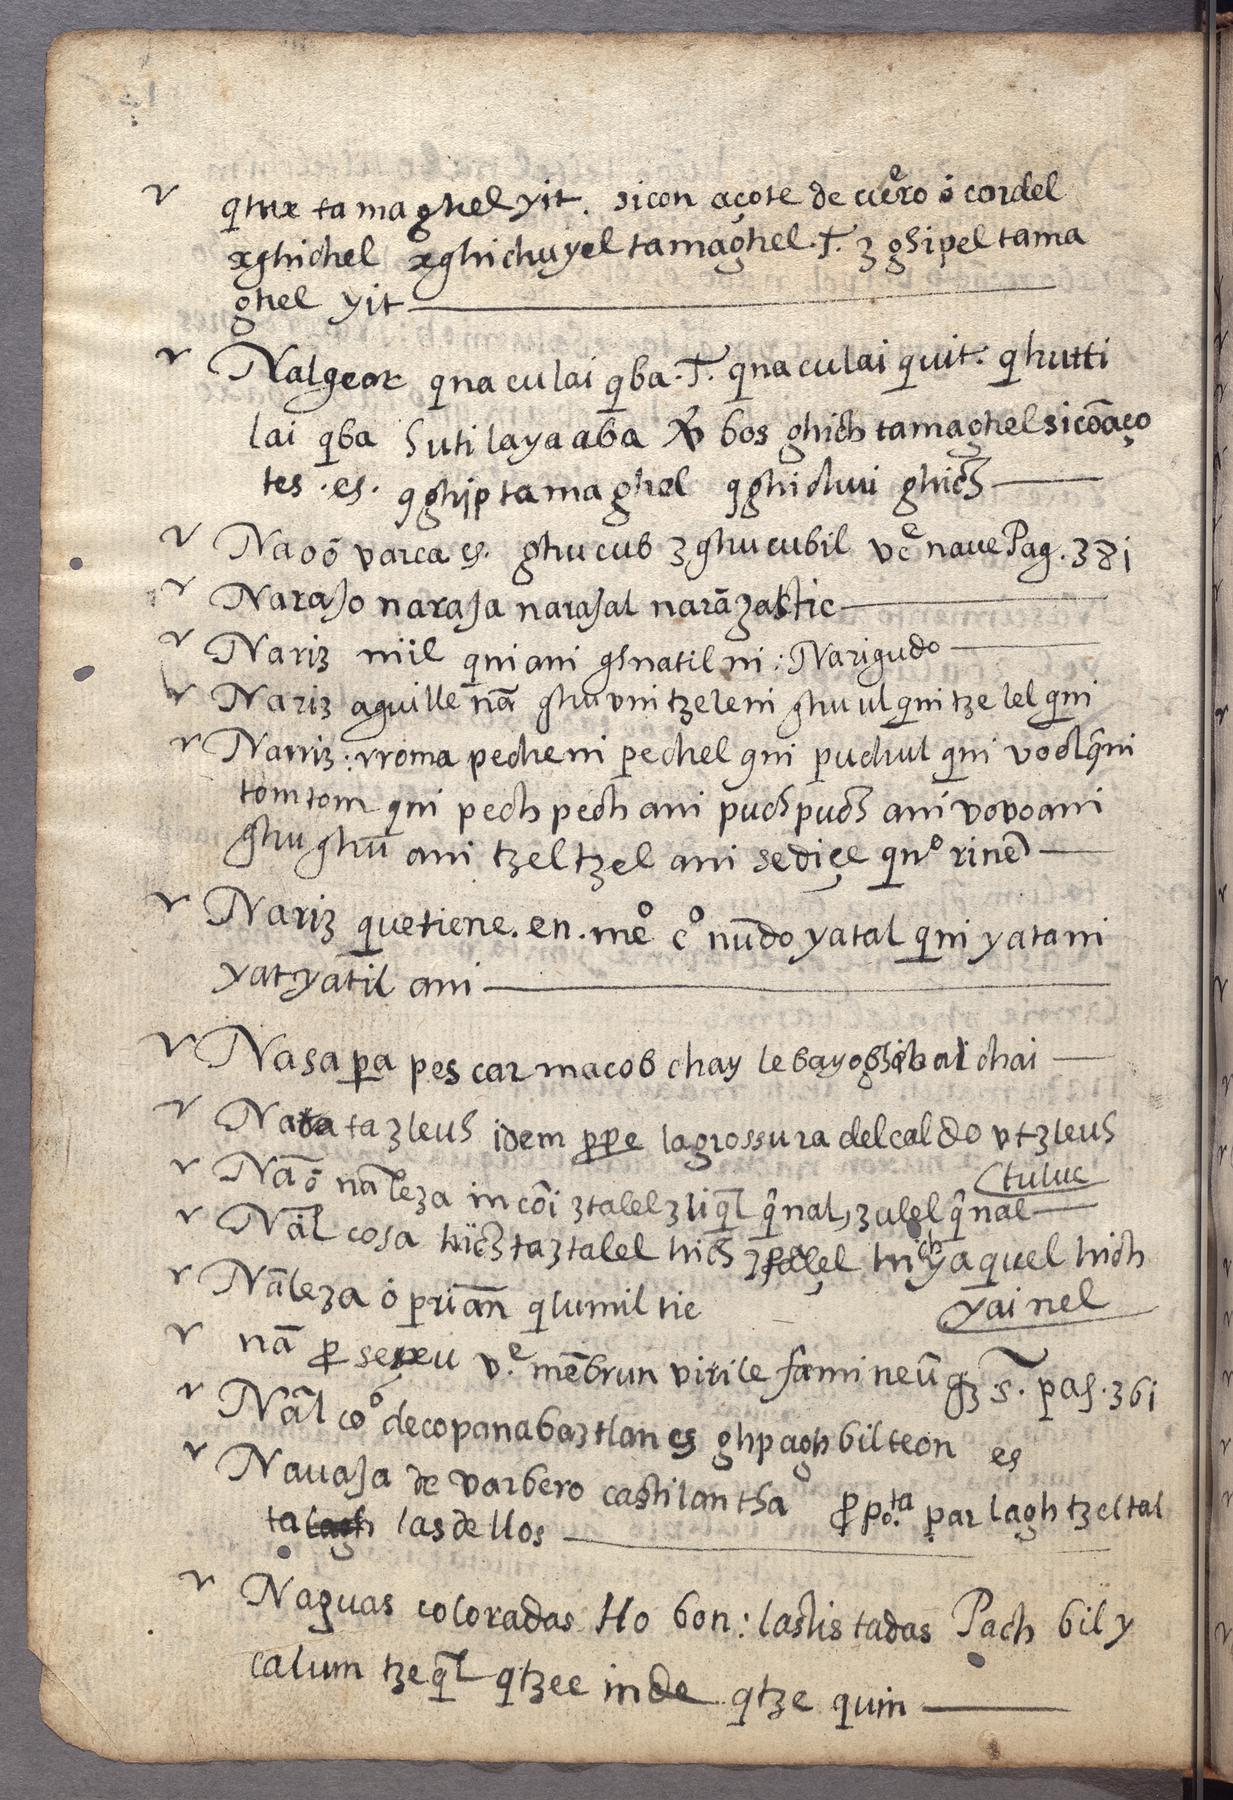 qhux tamaghel yit. sicon açote de cuero ó cordel
xghichel xghichuyel tamaghel. T. z ghipel tama
ghel yit
Nalgeor qna culai qba. T. qna culai quit. qhutti
lai qba suti laya aba bos ghich tamaghel sicōaço
tes. es. qghip tamaghel qghichui ghich
Nao ó varca es. ghucub z ghucubil vẽ naue Pag. 381
Naraso narasa narasal narāzastic
Nariz niil qni ani ghnatil ni: Narigudo
Nariz aguilleña ghu vni tzeleni ghu ul qni tzelel qni
Nariz: rroma pecheni pechel qni puchul qni voch qni
tomtom qni pech pech ani puch puch ani vovo ani
ghu ghū ani tzel tzel ani sediçe qno rinẽ
Nariz que tiene. en. meo co nūdo yatal qni yatani
yatyatil ani
Nasa pa pescar macob chay lebayob chai
Nata ta zleus idem ppe lagrossura delcaldo vtzleus
tuluc
Nāō nāleza in cōi ztalel zliql qnal, zulel qnal
Nāl cosa hich ta ztalel hich hich yaquel hich
yai nel
Nāleza ó priān qlumil tic
nā p seseu v.e mēbrun virile fæmineū s. pag. 361
Nāl coo decopanabaztlan es ghpaghbilteon es
Nauasa de varbero castilan tha p po.ta par lagh tzeltal
ta las dellos
Naguas coloradas Ho bon: lastis tadas Pach bil y
calum tzeql qtzee inde qtze quin